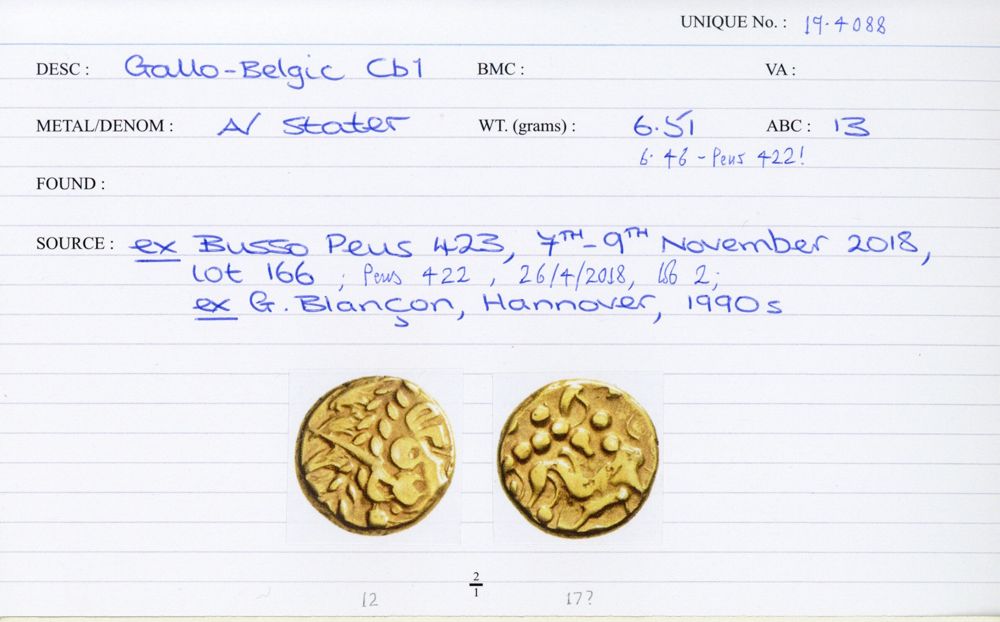 UNIQUE No. : 19.4088
DESC : Gallo-Belgic Cb1 BMC : VA :
METAL/DENOM : A/ Stater WT. (grams) : 6.51 ABC : 13
6.46 - Peus 422!
FOUND :
SOURCE : ex Busso Peus 423, 7TH-9TH November 2018,
lot 166 ; Peus 422 , 26/4/2018, 2;
ex G. Blançon, Hannover, 1990s
2
1
12 17?